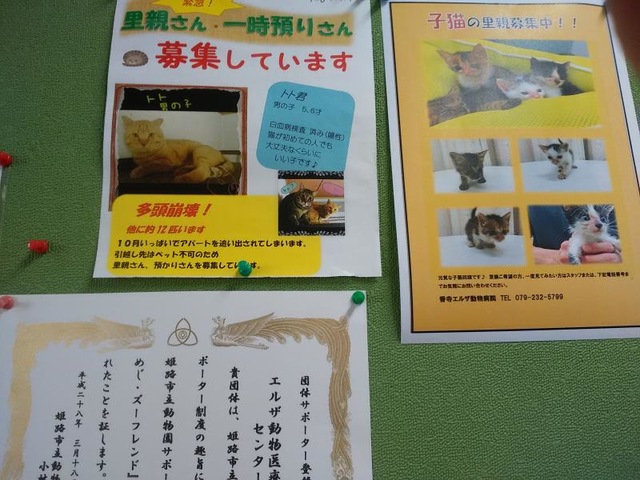 緊急!
里親さん・一時預りさん
募集しています
トト
男の子
トト君
男の子 5、6才
白血病検査 済み(陰性)
猫が初めての人でも
大丈夫なぐらいに
いい子です♪
多頭崩壊!
他に約12匹います
10月いっぱいでアパートを追い出されてしまいます。
引越し先はペット不可のため
里親さん、預かりさんを募集しています。
子猫の里親募集中!!
元気な子猫4匹です♪ 里親ご希望の方、一度見てみたい方はスタッフまたは、下記電話番号ま
でお気軽にお問い合わせください。
香寺エルザ動物病院 TEL 079-232-5799
団体サポーター登
エルザ動物医療
センター
貴団体は、姫路市立
ポーター制度の趣旨に
姫路市立動物園サポー
めじ・ズーフレンド』
れたことを証します。
平成二十八年 三月十八
姫路市立動物
小林